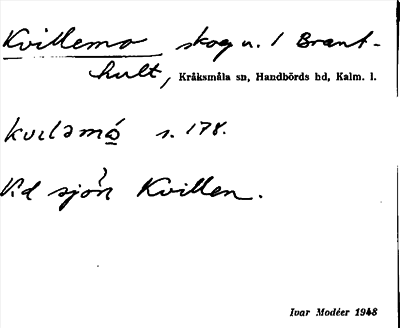 Kvillemo skog u. 1 Brant-
hult, Kråksmåla sn, Handbörds hd, Kalm. l.
kvıləmó̲ s. 178.
Vid sjön Kvillen.
Ivar Modéer 1948